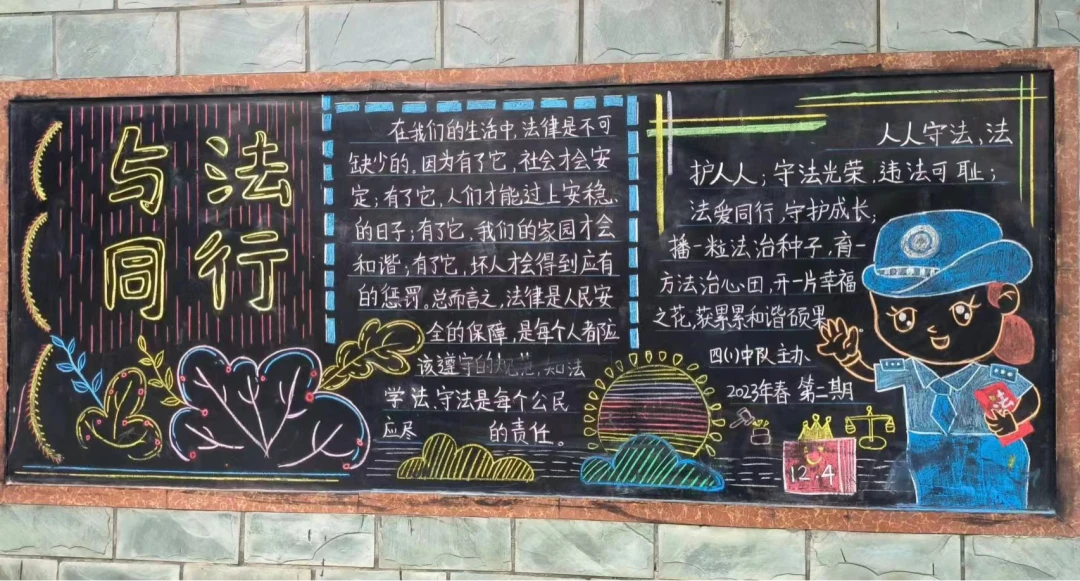 与法
同行
在我们的生活中,法律是不可
缺少的。因为有了它,社会才会安
定;有了它,人们才能过上安稳
的日子;有了它,我们的家园才会
和谐;有了它,坏人才会得到应有
的惩罚。总而言之,法律是人民安
全的保障,是每个人都应
该遵守的规范,知法
学法、守法是每个公民
应尽 的责任。
人人守法,法
护人人;守法光荣,违法可耻;
法爱同行,守护成长;
播一粒法治种子,育一
方法治心田,开一片幸福
之花,获累累和谐硕果。
四(1)中队主办
2023年春 第二期
12 4
法